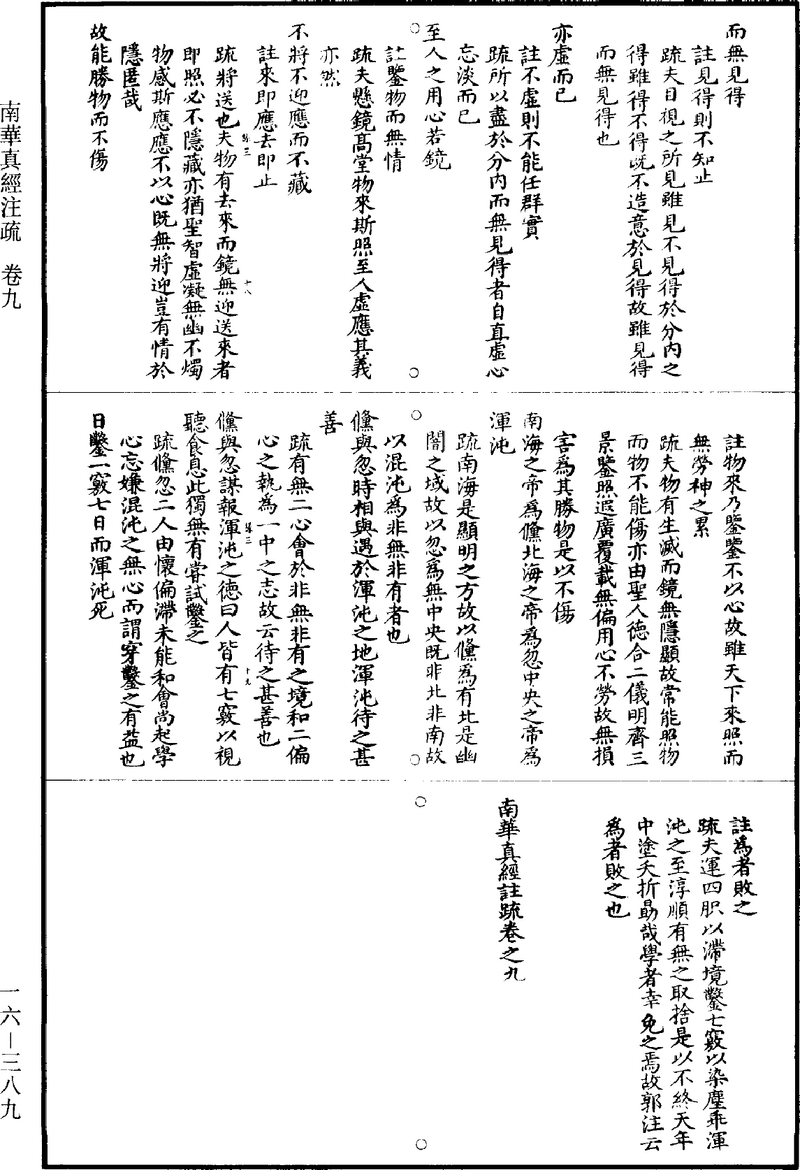 而無見得
註見得則不知止
疏夫目視之所見雖見不見得於分內之
得雖得不得既不造意於見得故雖見得
而無見得也
亦虛而已
註不虛則不能任群實
疏所以盡於分內而無見得者自直虛心
忘淡而已
至人之用心若鏡
註鑒物而無情
疏夫懸鏡高堂物來斯照至人虛應其義
亦然
不將不迎應而不藏
註來即應去即止
疏將送也夫物有去來而鏡無迎送來者
即照必不隱藏亦猶聖智虛凝無幽不燭
物感斯應應不以心既無將迎豈有情於
隱匿哉
故能勝物而不傷
註物來乃鑒鑒不以心故雖天下來照而
無勞神之累
疏夫物有生滅而鏡無隱顯故常能照物
而物不能傷亦由聖人德合二儀明齊三
景鑒照遐廣覆載無偏用心不勞故無損
害為其勝物是以不傷
南海之帝為儵北海之帝為忽中央之帝為
渾沌
疏南海是顯明之方故以儵為有北是幽
闇之域故以忽為無中央既非北非南故
以混沌為非無非有者也
儵與忽時相與遇於渾沌之地渾沌待之甚
善
疏有無二心會於非無非有之境和二偏
心之執為一中之志故云待之甚善也
儵與忽謀報渾沌之德曰人皆有七竅以視
聽食息此獨無有嘗試鑿之
疏儵忽二人由懷偏滯未能和會尚起學
心忘嫌混沌之無心而謂穿鑿之有益也
日鑿一竅七日而渾沌死
註為者敗之
疏夫運四肢以滯境鑿七竅以染塵乖渾
沌之至淳順有無之取捨是以不終天年
中塗夭折勗哉學者幸免之焉故郭注云
為者敗之也
南華真經註疏卷之九
南華真經注疏 卷九
一六—三八九
十八
十九